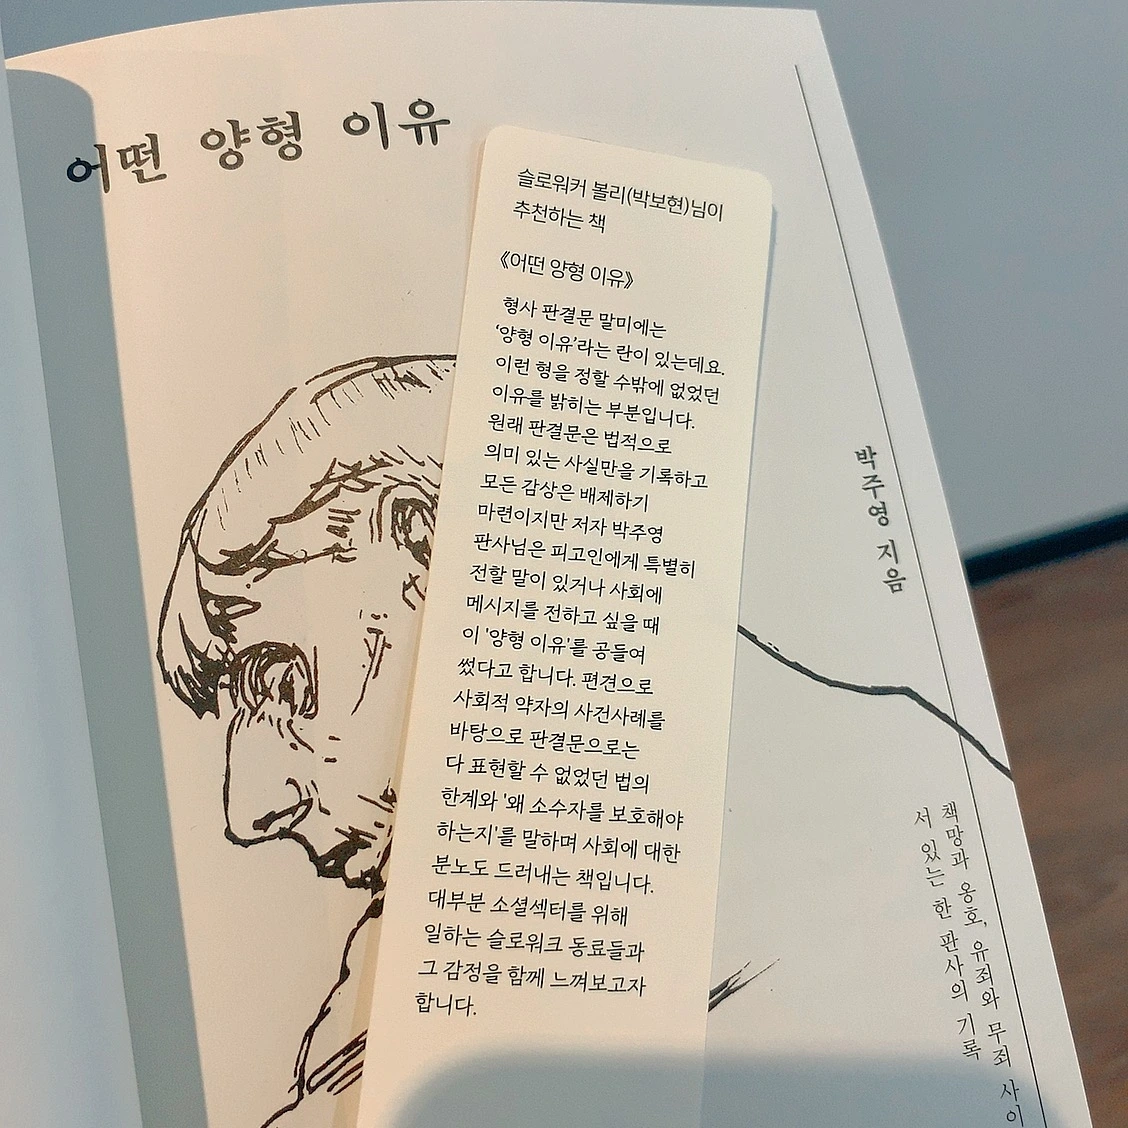 어떤 양형 이유
슬로워커 볼리(박보현)님이
추천하는 책
《어떤 양형 이유》
형사 판결문 말미에는
‘양형 이유’라는 란이 있는데요.
이런 형을 정할 수밖에 없었던
이유를 밝히는 부분입니다.
원래 판결문은 법적으로
의미 있는 사실만을 기록하고
모든 감상은 배제하기
마련이지만 저자 박주영
판사님은 피고인에게 특별히
전할 말이 있거나 사회에
메시지를 전하고 싶을 때
이 '양형 이유'를 공들여
썼다고 합니다. 편견으로
사회적 약자의 사건사례를
바탕으로 판결문으로는
다 표현할 수 없었던 법의
한계와 '왜 소수자를 보호해야
하는지'를 말하며 사회에 대한
분노도 드러내는 책입니다.
대부분 소셜섹터를 위해
일하는 슬로워크 동료들과
그 감정을 함께 느껴보고자
합니다.
박주영 지음
책망과 옹호, 유죄와 무죄 사이
서 있는 한 판사의 기록